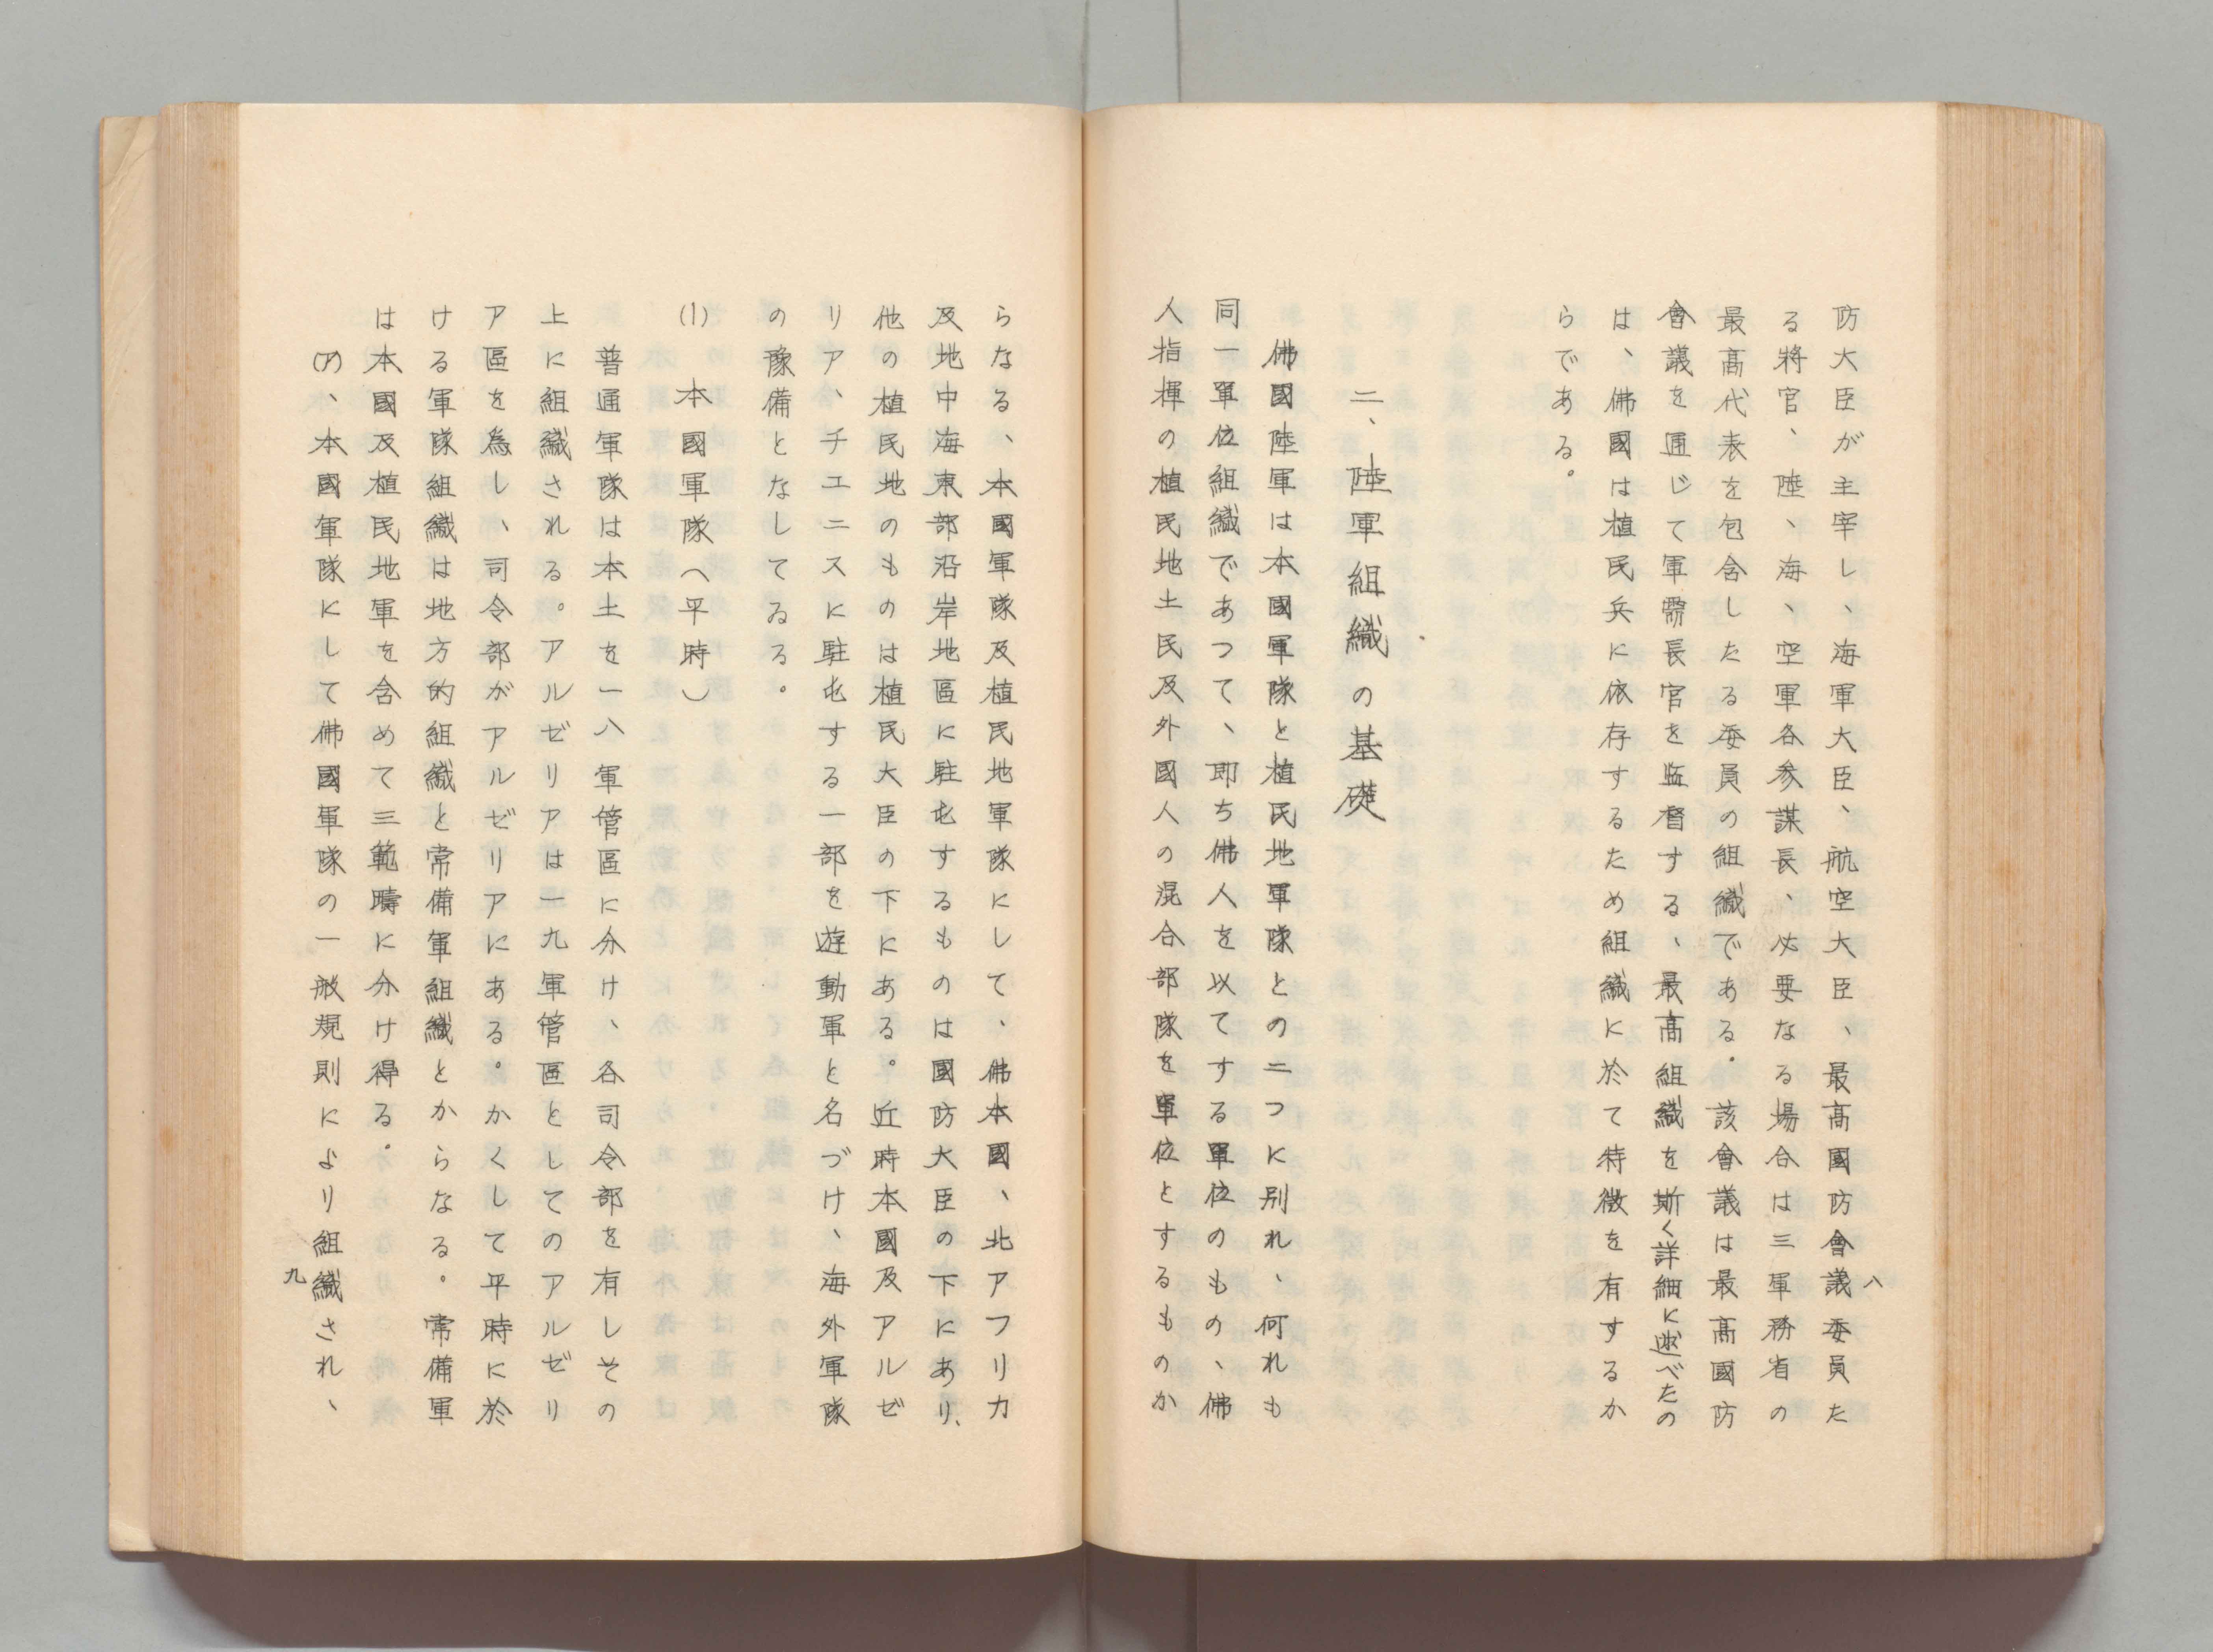 防大臣が主宰し、海軍大臣、航空大臣、最高國防會議委員た
る將官、陸、海、空軍各参謀長、必要なる場合は三軍務省の
最高代表を包含したる委員の組織である。該會議は最高國防
會議を通じて軍需長官を監督する、最高組織を斯く詳細に述べたの
は、佛國は植民兵に依存するため組織に於て特徴を有するか
らである。
二、陸軍組織の基礎
佛國陸軍は本國軍隊と植民地軍隊との二つに別れ、何れも
同一單位組織であつて、即ち佛人を以てする單位のもの、佛
人指揮の植民地土民及外國人の混合部隊を單位とするものか
八
らなる、本國軍隊及植民地軍隊にして、佛本國、北アフリカ
及地中海東部沿岸地區に駐屯するものは國防大臣の下にあり、
他の植民地のものは植民大臣の下にある。近時本國及アルゼ
リア、チユニスに駐屯する一部を遊動軍と名づけ、海外軍隊
の豫備となしてゐる。
(1) 本國軍隊(平時)
普通軍隊は本土を一八軍管區に分け、各司令部を有しその
上に組織される。アルゼリアは一九軍管區としてのアルゼリ
ア區を為し、司令部がアルゼリアにある。かくして平時に於
ける軍隊組織は地方的組織と常備軍組織とからなる。常備軍
は本國及植民地軍を含めて三範疇に分け得る。
(ア)、本國軍隊にして佛國軍隊の一般規則により組織され、
九